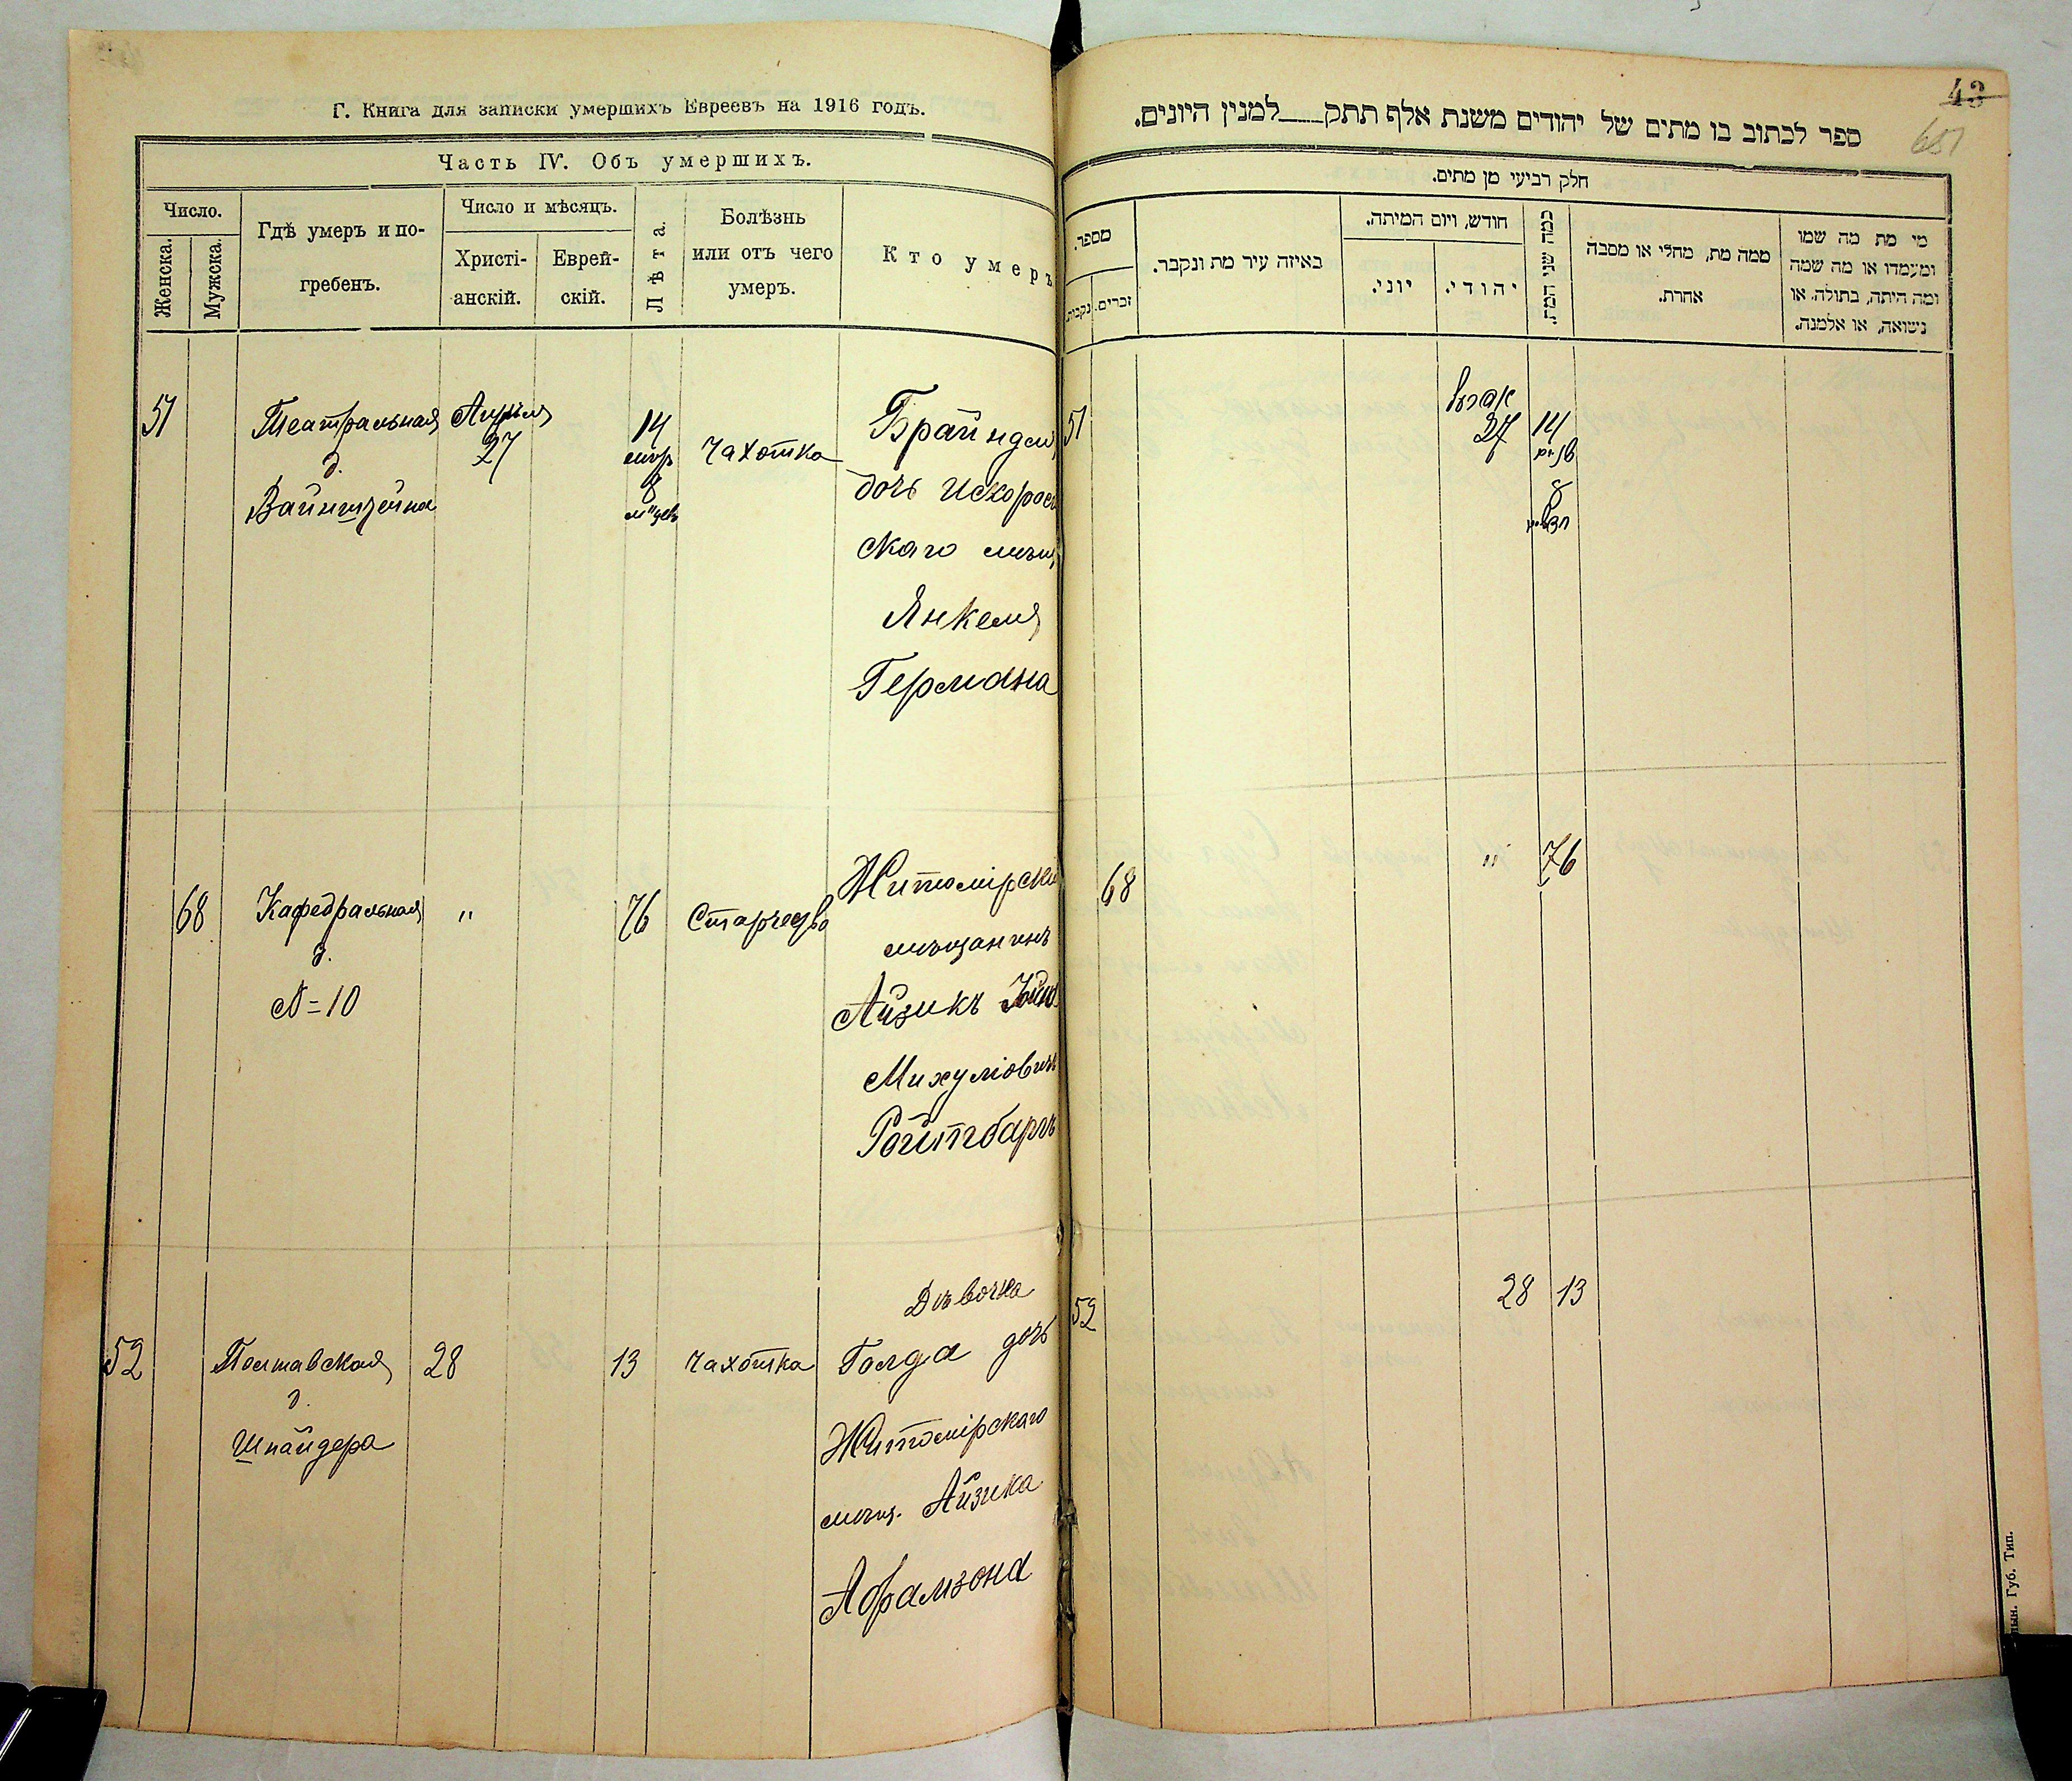 Г. Книга для записки умершихъ Евреевъ на 1916 годъ.
Часть IV. Объ умершихъ.
Число.
Женска.
Мужска.
Гдѣ умеръ и по-
гребенъ.
Число и мѣсяцъ.
Христі-
анскій.
Еврей-
скій.
Лѣта.
Болѣзнь
или отъ чего
умеръ.
Кто умеръ
51
Театральная
д.
Вайнштейна
Апрѣля
27
14
8
Чахотка
Брайндля
дочь Искорост
скаго мѣщ
Янкеля
Германа
68
Кафедральная
д.
№=10
"
76
Старчество
Житомірскій
мѣщанинъ
Айзикъ
Михуліовичъ
Ройтбаргъ
52
Полтавская
д.
Шнайдера
28
13
Чахотка
Дѣвочка
Голда дочь
Житомірскаго
мѣщ. Айзика
Абрамзона
43
651
ספר לכתוב בו מתים של יהודים משנת אלף תתק___למנין היונים.
חלק רביעי מן מתים.
מספר.
זכרים.
נקבות.
באיזה עיר מת ונקבר.
חודש, ויום המיתה.
יוני.
יהודי.
כמה שני המת.
ממה מת, מחלי או מסבה
אחרת.
מי מת מה שמו
ומעמדו או מה שמה
ומה היתה, בתולה, או
נשואה, או אלמנה.
51
14
8
68
"
76
52
28
13
Губ. Тип.